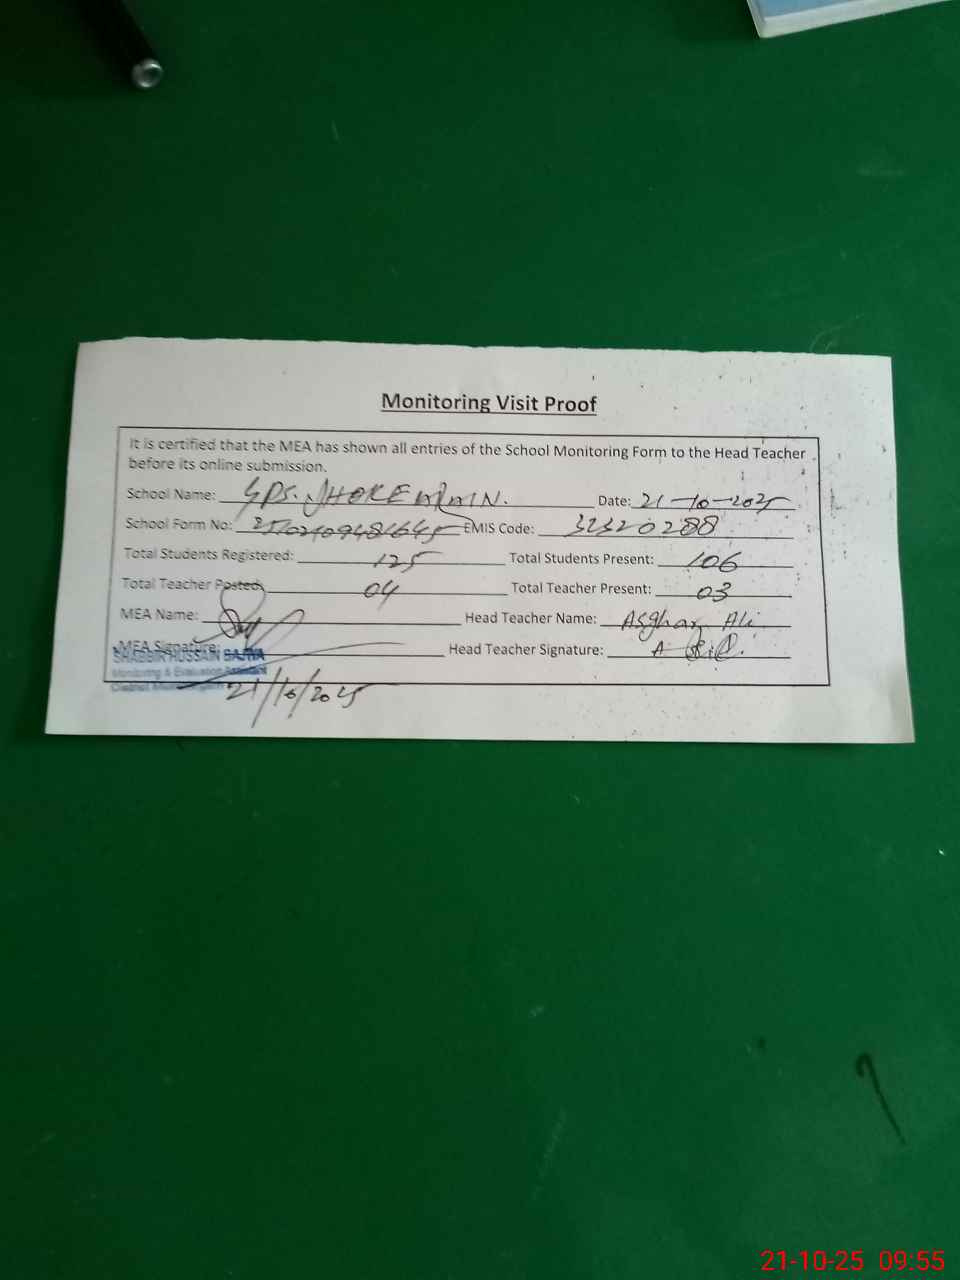 Monitoring Visit Proof
It is certified that the MEA has shown all entries of the School Monitoring Form to the Head Teacher
before its online submission.
School Name: GPS. JHOKE Date: 21-10-2025
School Form No: EMIS Code: 32320288
Total Students Registered: 125 Total Students Present: 106
Total Teacher Posted: 04 Total Teacher Present: 03
MEA Name: Head Teacher Name: Asghar Ali
MEA Signature: Head Teacher Signature:
SHABBIR HUSSAIN
Monitoring & Evaluation Assistant
District
21/10/2025
21-10-25 09:55